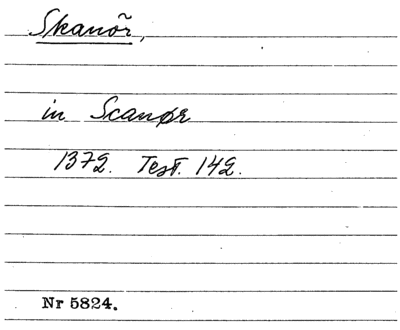 Skanör,
in Scanør
1372. Test. 142.
Nr 5824.